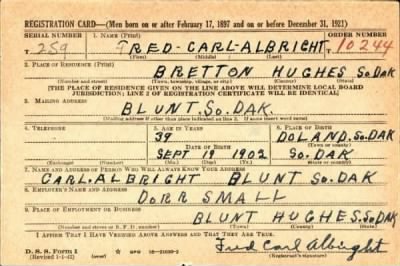 REGISTRATION CARD—(Men born on or after February 17, 1897 and on or before December 31, 1921)
SERIAL NUMBER 1. NAME (Print) ORDER NUMBER
259 FRED - CARL - ALBRIGHT 10244
(First) (Middle) (Last)
2. PLACE OF RESIDENCE (Print)
BRETTON HUGHES SO.DAK
(Number and street) (Town, township, village, or city) (County) (State)
[THE PLACE OF RESIDENCE GIVEN ON THE LINE ABOVE WILL DETERMINE LOCAL BOARD
JURISDICTION; LINE 2 OF REGISTRATION CERTIFICATE WILL BE IDENTICAL]
3. MAILING ADDRESS
BLUNT. SO. DAK.
[Mailing address if other than place indicated on line 2. If same insert word same]
4. TELEPHONE 5. AGE IN YEARS 6. PLACE OF BIRTH
39 DOLAND, SO.DAK
DATE OF BIRTH (Town or county)
SEPT 19 1902 SO. DAK
(Exchange) (Number) (Mo.) (Day) (Yr.) (State or country)
7. NAME AND ADDRESS OF PERSON WHO WILL ALWAYS KNOW YOUR ADDRESS
CARL. ALBRIGHT BLUNT SO. DAK
8. EMPLOYER'S NAME AND ADDRESS
DORR SMALL
9. PLACE OF EMPLOYMENT OR BUSINESS
BLUNT HUGHES. SO.DAK
(Number and street or R. F. D. number) (Town) (County) (State)
I AFFIRM THAT I HAVE VERIFIED ABOVE ANSWERS AND THAT THEY ARE TRUE.
D. S. S. Form 1
(Revised 1-1-42) (over) GPO Fred Carl Albright
(Registrant's signature)